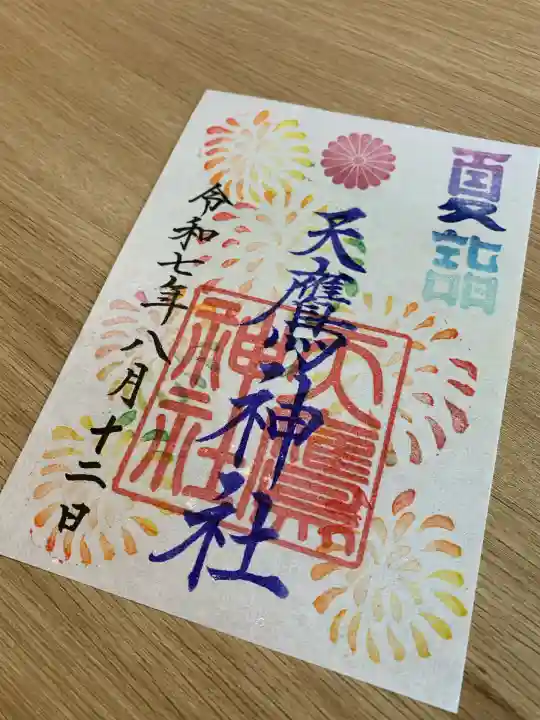 夏詣
天鷹神社
天鷹神社
令和七年八月十二日